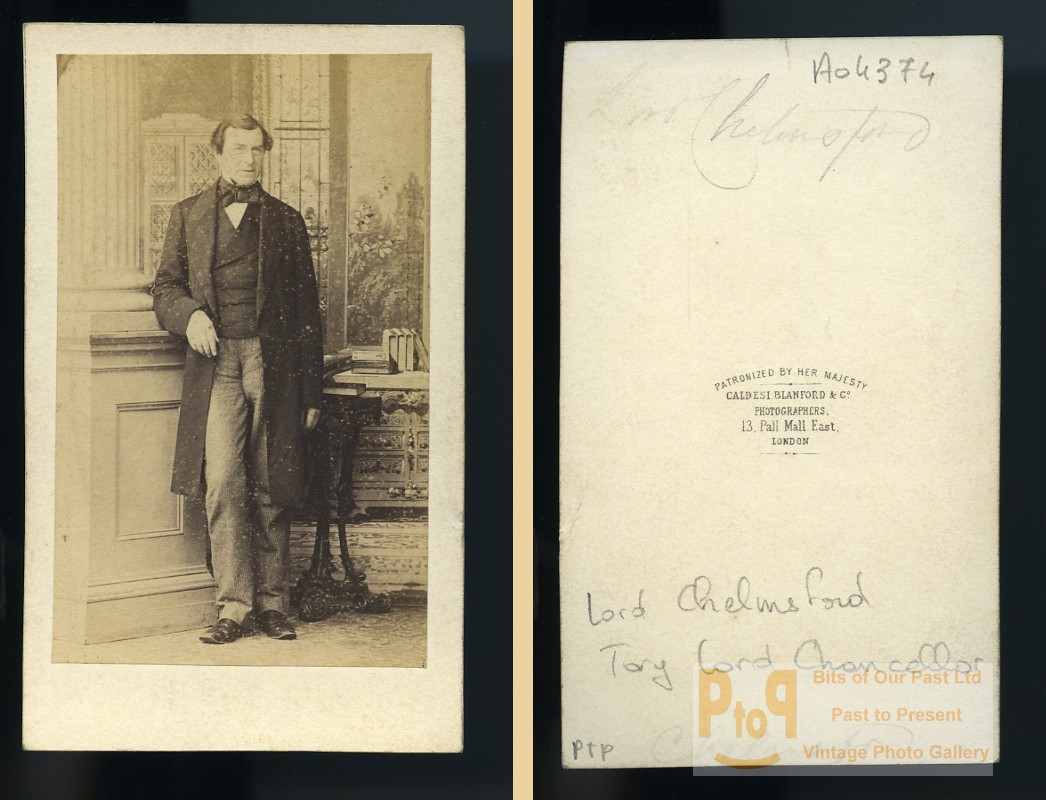 A04374
Lord Chelmsford
PATRONIZED BY HER MAJESTY
CALDESI BLANFORD & Co
PHOTOGRAPHERS,
13, Pall Mall East,
LONDON
Lord Chelmsford
Tory Lord Chancellor
PtoP
Bits of Our Past Ltd
Past to Present
Vintage Photo Gallery
PTP
Chelmsford